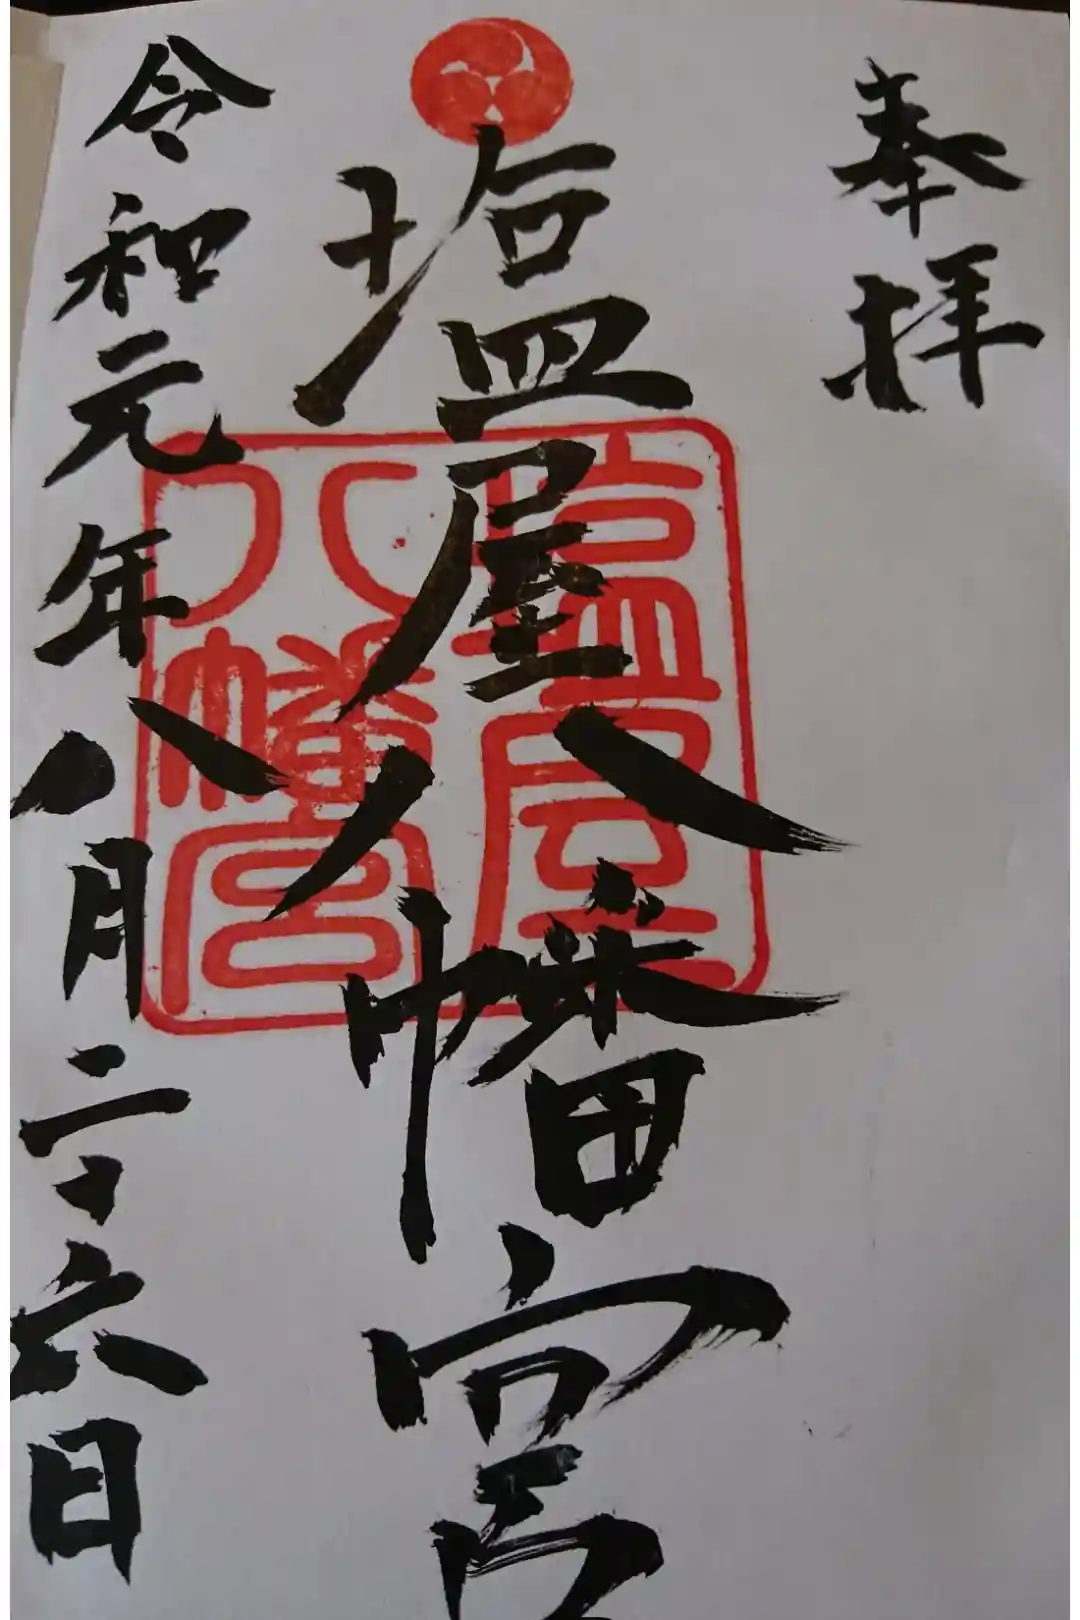 奉拝
塩屋八幡宮
塩屋
八幡宮
令和元年八月二十六日